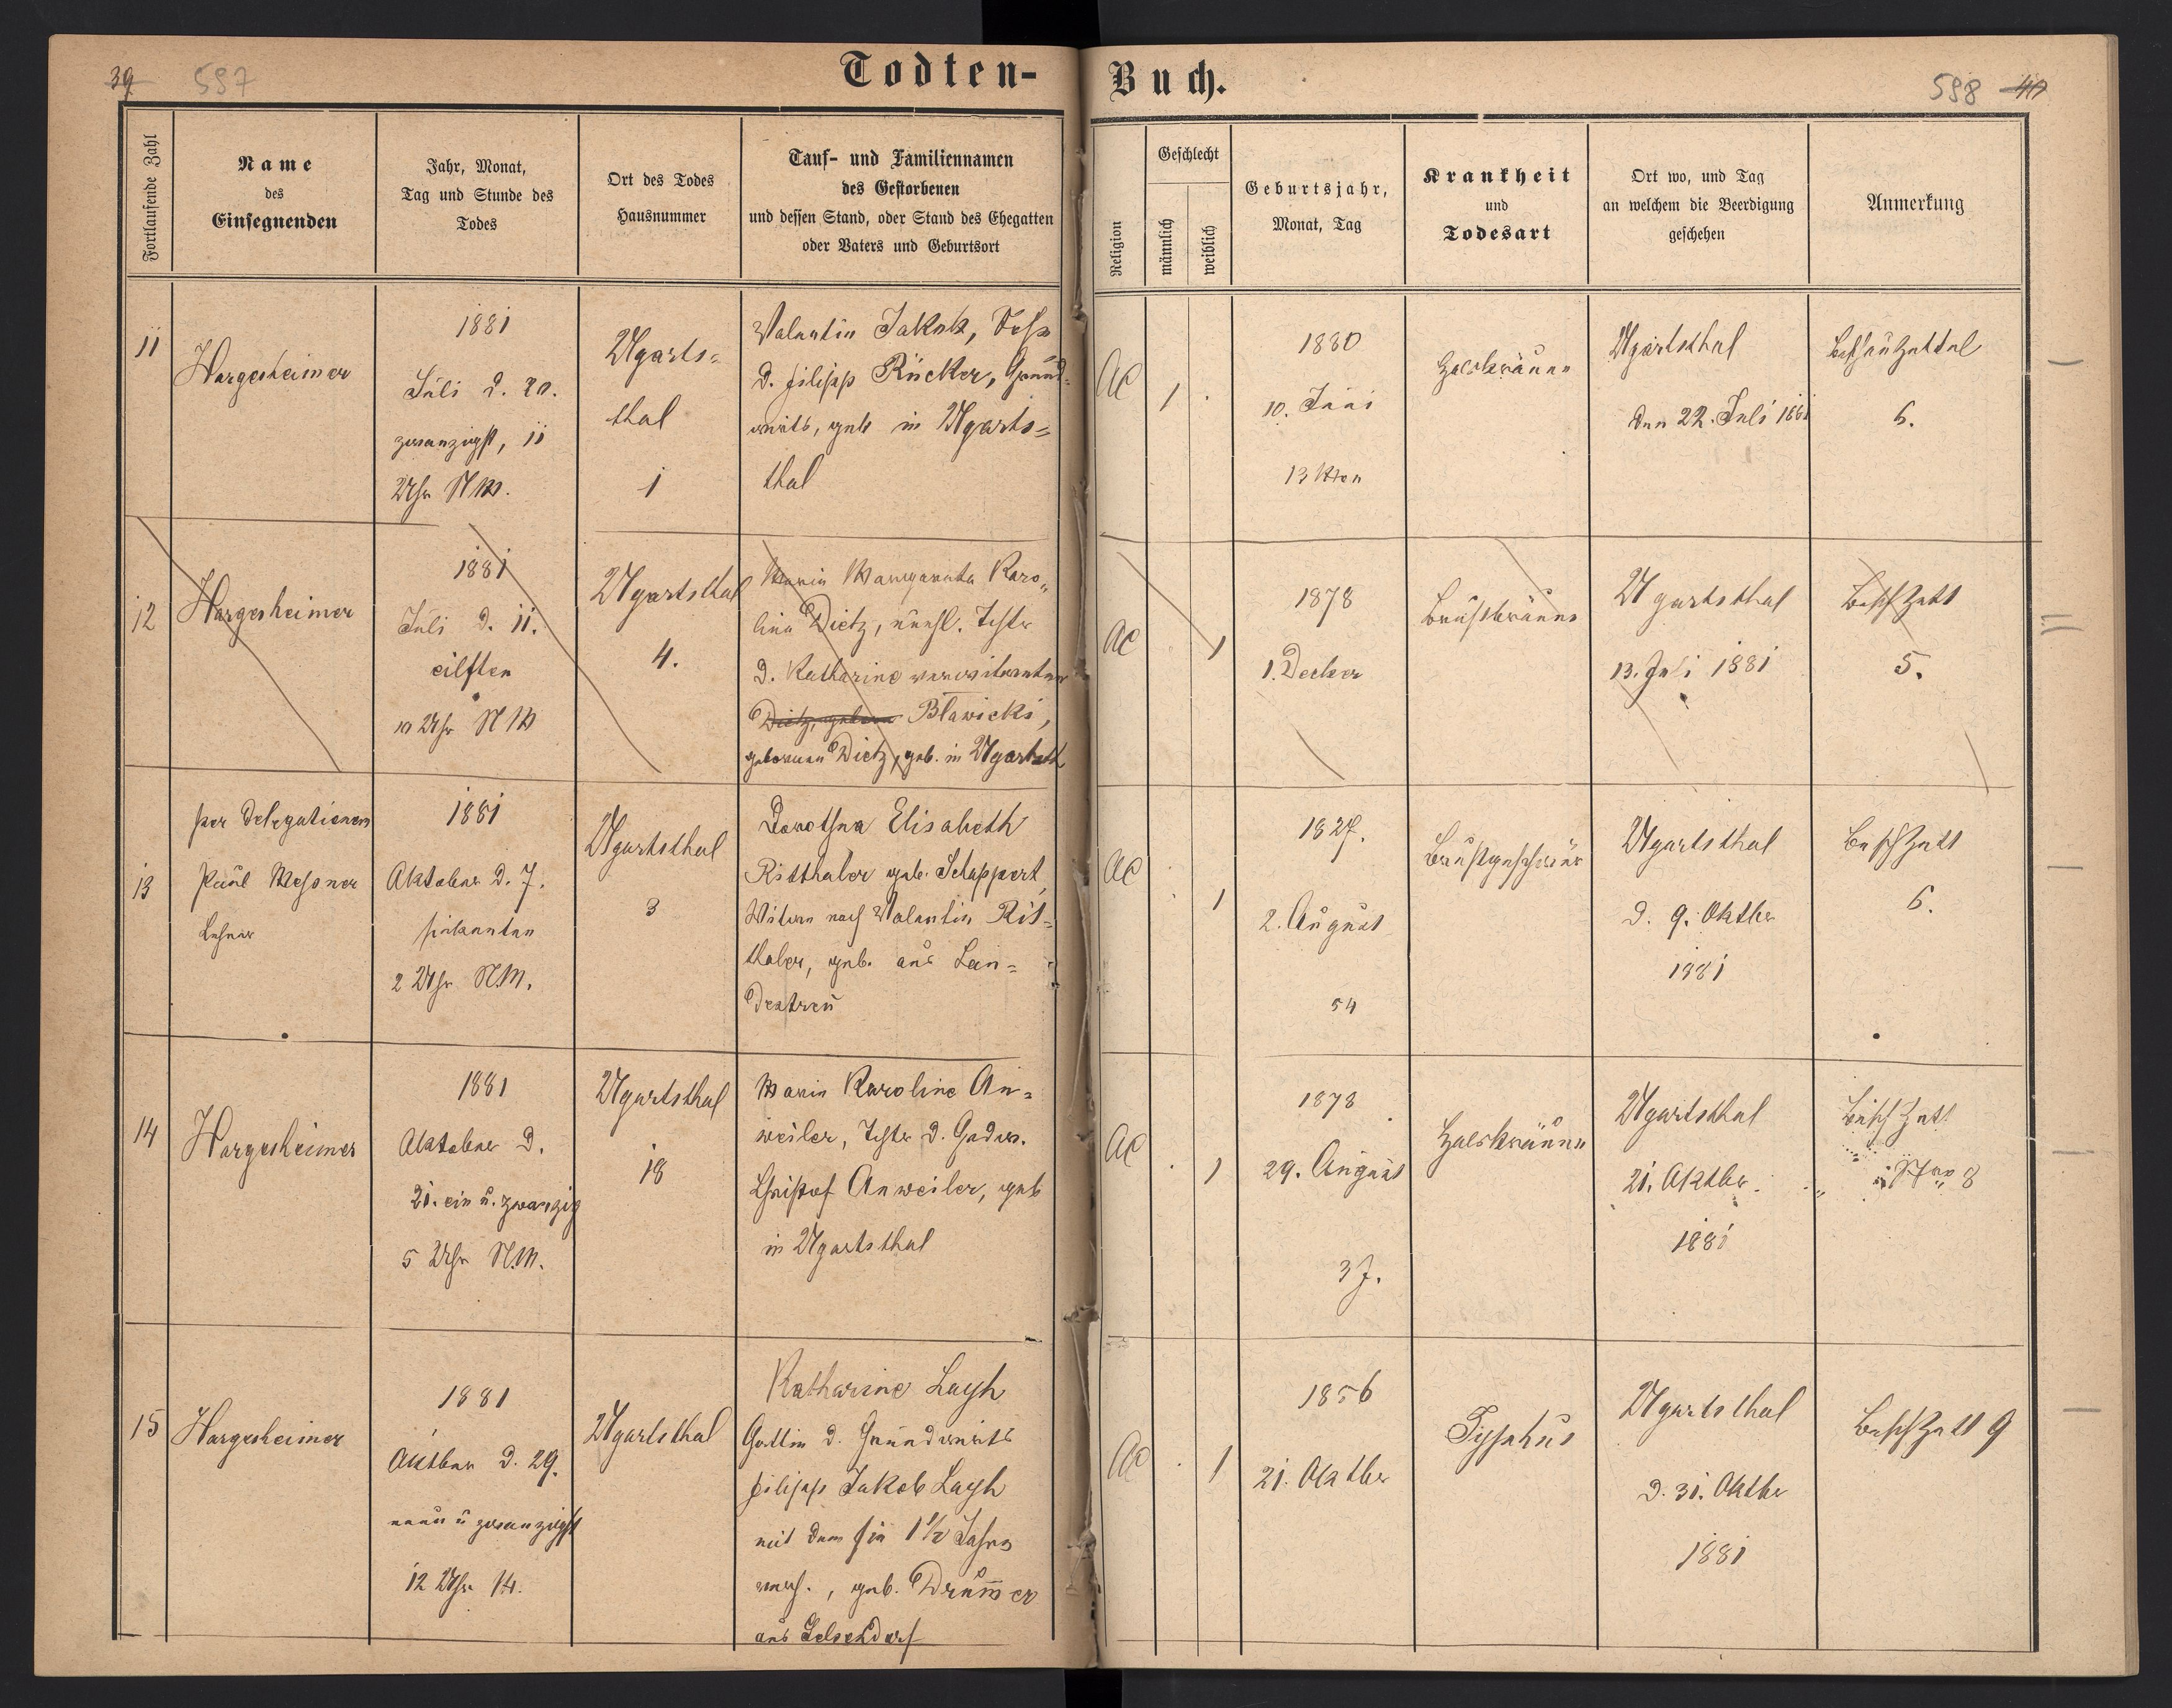 39 597
Todten-Buch.
598 40
Fortlaufende Zahl
Name
des
Einsegnenden
Jahr, Monat,
Tag und Stunde des
Todes
Ort des Todes
Hausnummer
Tauf- und Familiennamen
des Gestorbenen
und dessen Stand, oder Stand des Ehegatten
oder Vaters und Geburtsort
Religion
Geschlecht
männlich
weiblich
Geburtsjahr,
Monat, Tag
Krankheit
und
Todesart
Ort wo, und Tag
an welchem die Beerdigung
geschehen
Anmerkung
11
Hargesheimer
1881
Juli d. 20.
zwanzigst, 11
Uhr NM.
Ugarts=
thal
1
Valentin Jakob, Sohn
d. Filipp Rücker, Grund-
wirts, geb in Ugarts=
thal
AC
1
.
1880
10. Juni
13 Mon
Halsbräune
Ugartsthal
den 22. Juli 1881
Beschauzettel
6.
12
Hargesheimer
1881
Juli d. 11.
eilften
10 Uhr NM
Ugartsthal
4.
Maria Margaretha Karo„
lina Dietz, unehl. Tochter
d. Katharine verwitweten
Dietz, geborne Bławicki,
geborenen Dietz, geb. in Ugartsth
AC
.
1
1878
1. Decber
Brustbräune
Ugartsthal
13. Juli 1881
Besch Zettl
5.
13
per Delegationem
Paul Messner
Lehrer
1881
Oktober d. 7.
siebenten
2 Uhr NM.
Ugartsthal
3
Dorothea Elisabeth
Ritthaler geb. Schappert,
Witwe nach Valentin Rit=
thaler, geb. aus Lan=
destreu
AC
.
1
1827.
2. August
54
Brustgeschwür
Ugartsthal
d. 9. Oktber
1881
Besch Zettl
6.
14
Hargesheimer
1881
Oktober d.
21. ein u. zwanzig
5 Uhr N.M.
Ugartsthal
18
Maria Karoline An=
weiler, Tochter d. Grdw.
Christof Anweiler, geb
in Ugartsthal
AC
.
1
1878
29. August
3 J.
Halsbräune
Ugartsthal
21. Oktber.
1881
Besch Zettl
Nro 8
15
Hargesheimer
1881
Oktber d. 29.
neun u zwanzigst
12 Uhr M.
Ugartsthal
Katharine Layh
Gattin d. Grundwirts
Filipp Jakob Layh
mit dem sie 1½ Jahre
verh., geb. Drum̄er
aus Gelsendorf
AC
.
1
1856
21. Oktber
Typhus
Ugartsthal
d. 31. Oktbr
1881
Besch Zettl 9